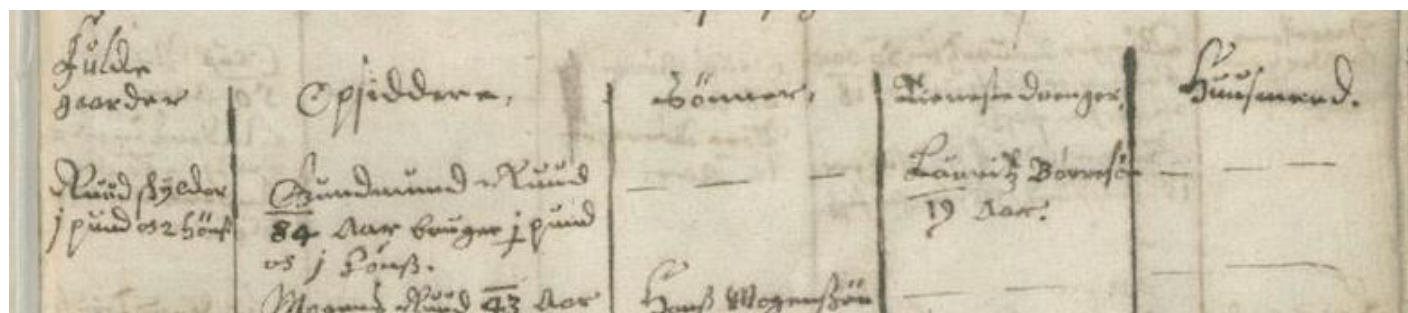 Fulde
gaarder
Opsiddere,
Sönner,
Tienneste drenger,
Huusmænd.
Ruud skylder
j pund og 2 höns
Gundmund Ruud
84 Aar bruger j pund
og j höns.
Lauritz Börresön
19 Aar.
Mogens Ruud 43 Aar
Hans Mogensön